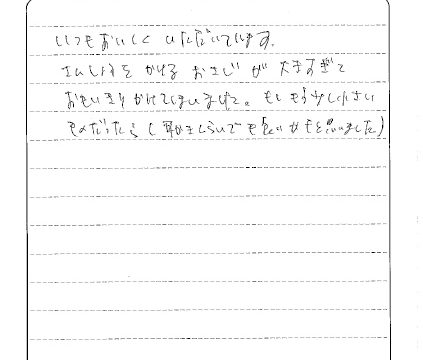 いつもおいしく いただいています。
さんしょうを かける おさじ が 大きすぎて
おもいきり かけてしまいました。もし もう少し小さい
ものだったら（耳かきくらいでも良いかもと思いました）